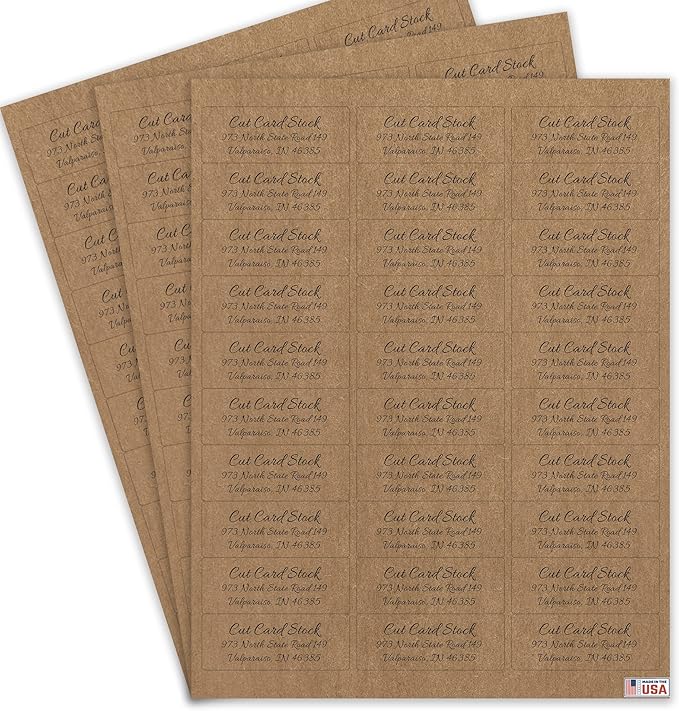 Cut Card Stock
973 North State Road 149
Cut Card Stock
973 North State Road 149
Valparaiso, IN 46385
Cut Card Stock
973 North State Road 149
Cut Card Stock Cut Card Stock Cut Card Stock
973 North State Road 149 973 North State Road 149 973 North State Road 149
Valparaiso, IN 46385 Valparaiso, IN 46385 Valparaiso, IN 46385
Cut Card Stock Cut Card Stock Cut Card Stock
973 North State Road 149 973 North State Road 149 973 North State Road 149
Valparaiso, IN 46385 Valparaiso, IN 46385 Valparaiso, IN 46385
Cut Card Stock Cut Card Stock Cut Card Stock
973 North State Road 149 973 North State Road 149 973 North State Road 149
Valparaiso, IN 46385 Valparaiso, IN 46385 Valparaiso, IN 46385
Cut Card Stock Cut Card Stock Cut Card Stock
973 North State Road 149 973 North State Road 149 973 North State Road 149
Valparaiso, IN 46385 Valparaiso, IN 46385 Valparaiso, IN 46385
Cut Card Stock Cut Card Stock Cut Card Stock
973 North State Road 149 973 North State Road 149 973 North State Road 149
Valparaiso, IN 46385 Valparaiso, IN 46385 Valparaiso, IN 46385
Cut Card Stock Cut Card Stock Cut Card Stock
973 North State Road 149 973 North State Road 149 973 North State Road 149
Valparaiso, IN 46385 Valparaiso, IN 46385 Valparaiso, IN 46385
Cut Card Stock Cut Card Stock Cut Card Stock
973 North State Road 149 973 North State Road 149 973 North State Road 149
Valparaiso, IN 46385 Valparaiso, IN 46385 Valparaiso, IN 46385
Cut Card Stock Cut Card Stock Cut Card Stock
973 North State Road 149 973 North State Road 149 973 North State Road 149
Valparaiso, IN 46385 Valparaiso, IN 46385 Valparaiso, IN 46385
Cut Card Stock Cut Card Stock Cut Card Stock
973 North State Road 149 973 North State Road 149 973 North State Road 149
Valparaiso, IN 46385 Valparaiso, IN 46385 Valparaiso, IN 46385
Cut Card Stock Cut Card Stock Cut Card Stock
973 North State Road 149 973 North State Road 149 973 North State Road 149
Valparaiso, IN 46385 Valparaiso, IN 46385 Valparaiso, IN 46385
MADE IN THE
USA